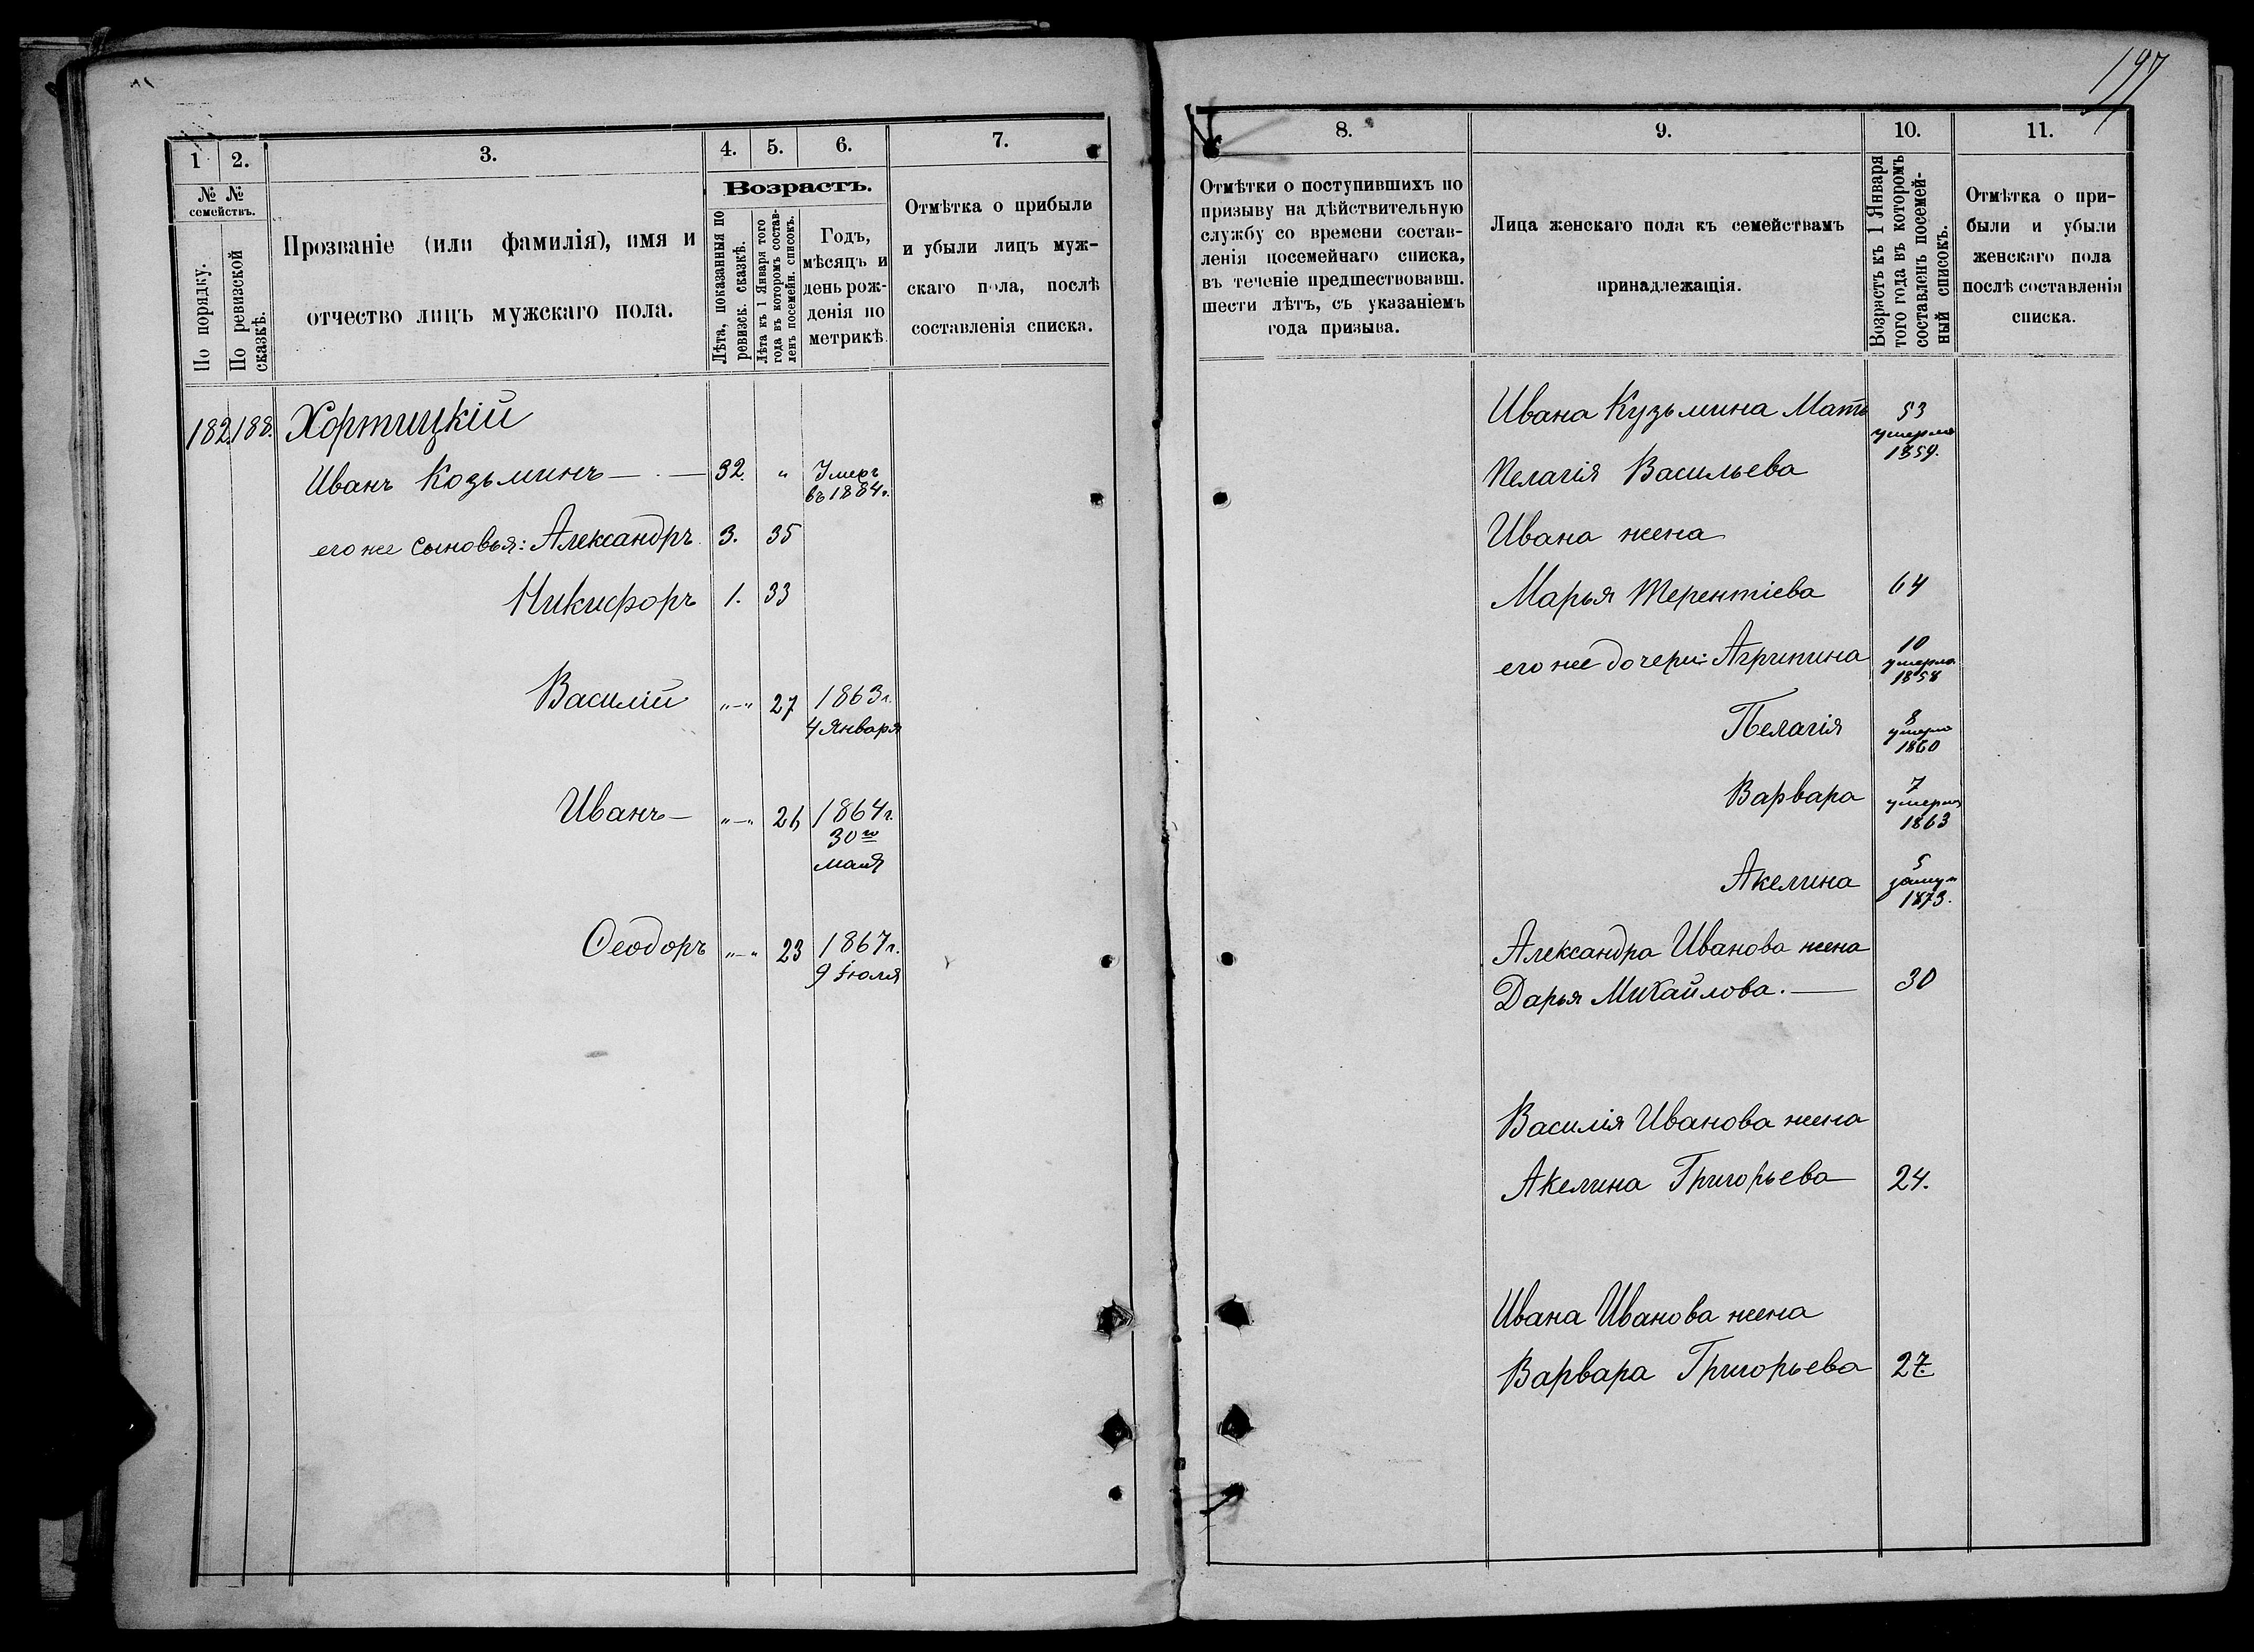 197
1. 2. 3. 4. 5. 6. 7.
№ № семействъ.
По порядку.
По ревизской сказкѣ.
Прозваніе (или фамилія), имя и
отчество лицъ мужскаго пола.
Возрастъ.
Лѣта, показанныя по
ревизск. сказкѣ.
Лѣта къ 1 Января того
года въ которомъ состав-
ленъ посемейн. списокъ.
Годъ,
мѣсяцъ и
день рож-
денія по
метрикѣ.
Отмѣтка о прибыли
и убыли лицъ муж-
скаго пола, послѣ
составленія списка.
182. 188. Хортицкій
Иванъ Козьминъ — 32. " Умеръ
въ 1884г.
его же сыновья: Александръ 3. 35
Никифоръ 1. 33
Василій "—" 27 1863г.
4 Января
Иванъ — "—" 26 1864г.
30го
мая
Ѳеодоръ "—" 23 1867г.
9 Іюля
8. 9. 10. 11.
Отмѣтки о поступившихъ по
призыву на дѣйствительную
службу со времени состав-
ленія посемейнаго списка,
въ теченіе предшествовавш.
шести лѣтъ, съ указаніемъ
года призыва.
Лица женскаго пола къ семействамъ
принадлежащія.
Возрастъ къ 1 Января
того года въ которомъ
составленъ посемей-
ный списокъ.
Отмѣтка о при-
были и убыли
женскаго пола
послѣ составленія
списка.
Ивана Кузьмина Мать 53
умерла
1859.
Пелагія Васильева
Ивана жена
Марья Терентіева 64
его же дочери: Агрипина 10
умерла
1858
Пелагія 8
умерла
1860
Варвара 7
умерла
1863
Акелина 5
замуж
1873.
Александра Иванова жена
Дарья Михайлова. — 30
Василія Иванова жена
Акелина Григорьева 24.
Ивана Иванова жена
Варвара Григорьева 27.